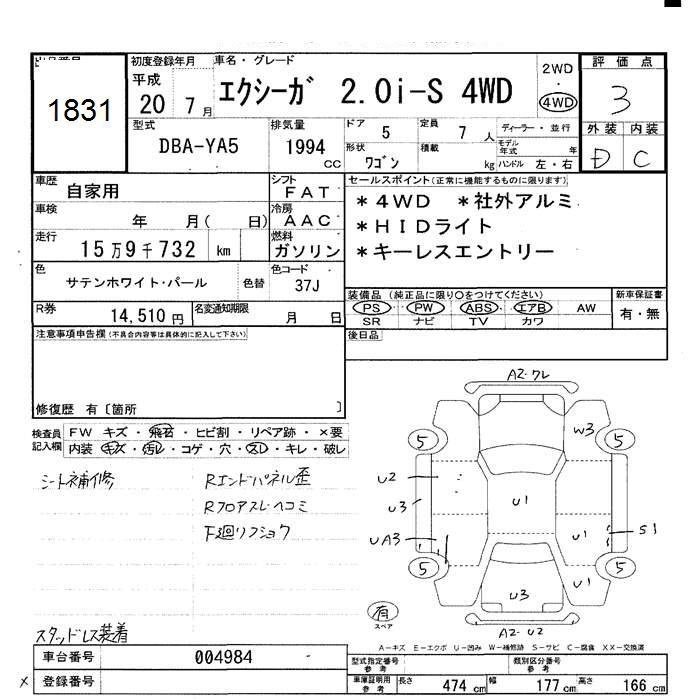 1831
初度登録年月
平成
20 7 月
車名・グレード
エクシーガ 2.0i-S 4WD
2WD
・
4WD
評価点
3
外装 内装
D C
型式
DBA-YA5
排気量
1994
cc
ドア
5
定員
7 人
ディーラー・並行
形状
ワゴン
積載
kg
モデル年式
年
ハンドル 左・右
車歴
自家用
シフト
FAT
車検
年 月( 日)
冷房
AAC
走行
15万9千732 km
燃料
ガソリン
色
サテンホワイト・パール
色替
色コード
37J
R券
14,510 円
名変通知期限
月 日
セールスポイント(正常に機能するものに限ります)
*4WD *社外アルミ
*HIDライト
*キーレスエントリー
装備品 (純正品に限り○をつけてください)
PS PW ABS エアB AW
SR ナビ TV カワ
新車保証書
有・無
後日品
注意事項申告欄(不具合内容等は具体的に記入して下さい)
修復歴 有〔箇所 〕
検査員
記入欄
FW キズ・飛石・ヒビ割・リペア跡・×要
内装 キズ・汚レ・コゲ・穴・スレ・キレ・破レ
シート補修
Rエンドパネル歪
Rフロアスレヘコミ
F廻リフショク
スタッドレス装着
A2・ワレ
W3
5
5
U2
U3
U1
UA3
U1
S1
5
5
U1
U3
有
スペア
A2・U2
A-キズ E-エクボ U-凹み W-補修跡 S-サビ C-腐食 XX-交換済
車台番号
004984
× 登録番号
型式指定番号
参考
類別区分番号
参考
車庫証明用
参考
長さ
474 cm
幅
177 cm
高さ
166 cm